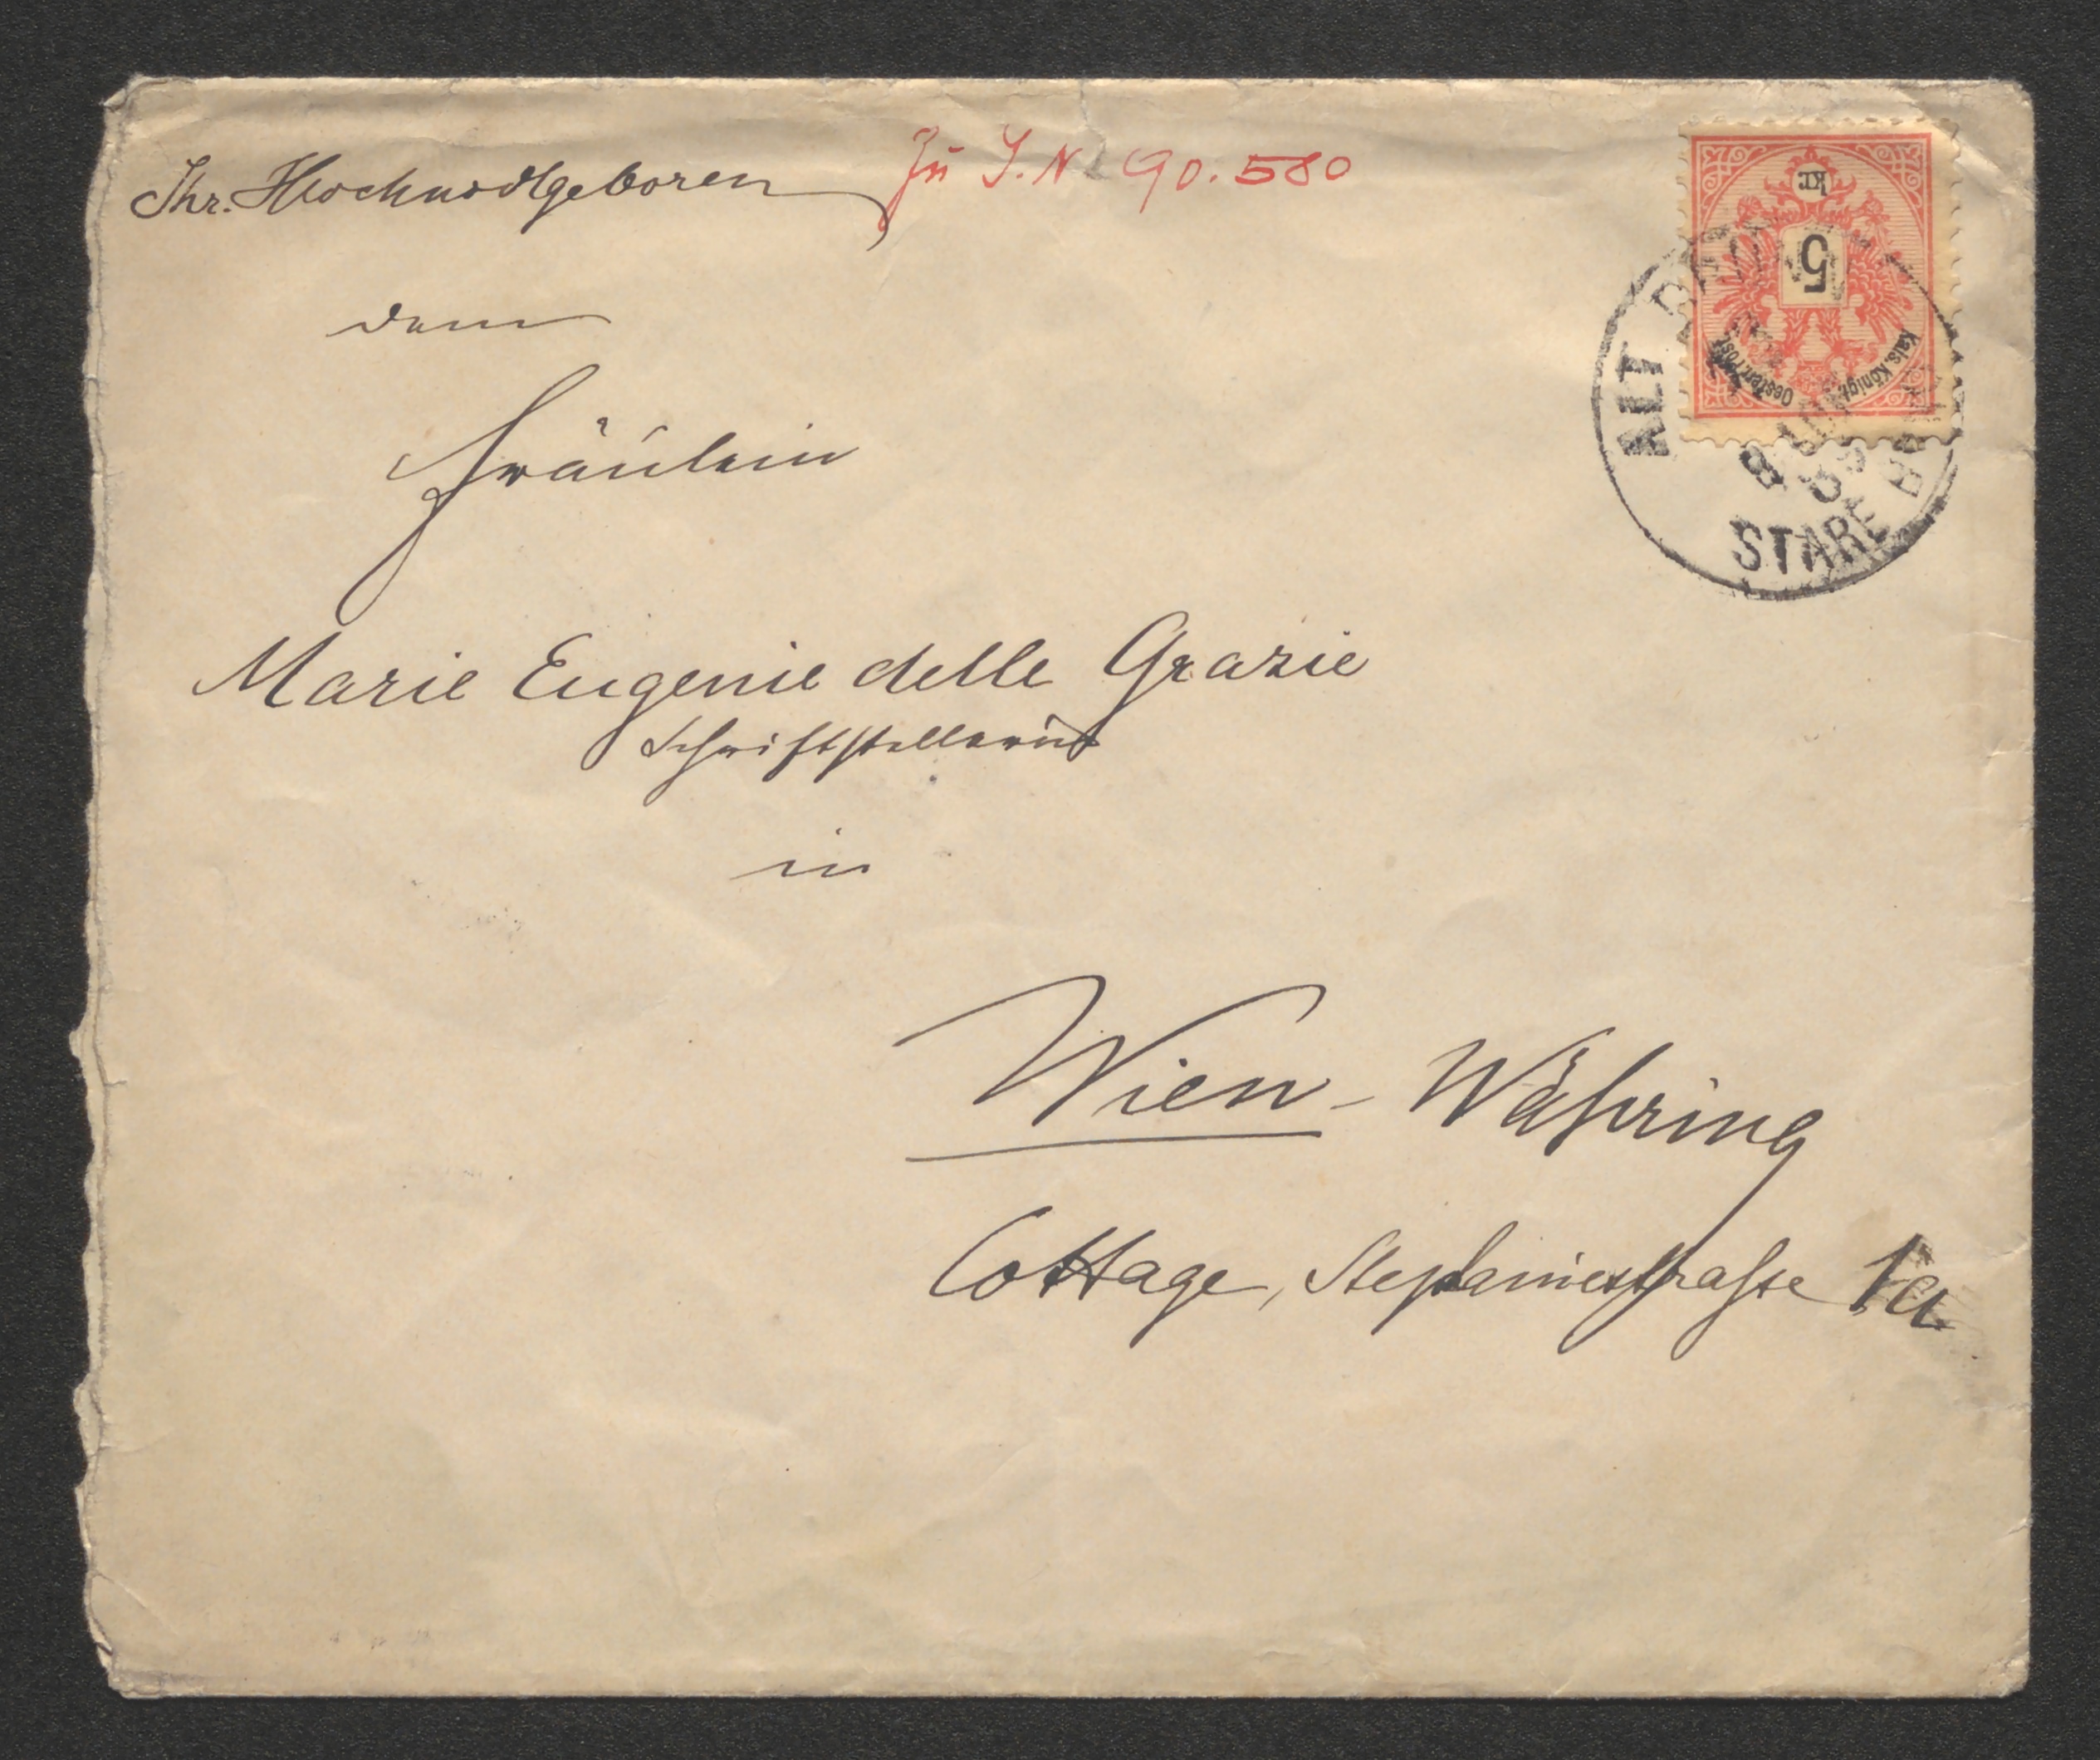 Ihr. Hochwolgeboren
Zu I.N 90.580
dem
Fräulein
Marie Eugenie delle Grazie
Schriftstellerin
in
Wien - Währing
Cottage, Stephaniestraße 1a
kr.
5
Kais. Königl. Oesterr. Post
ALT
STARE